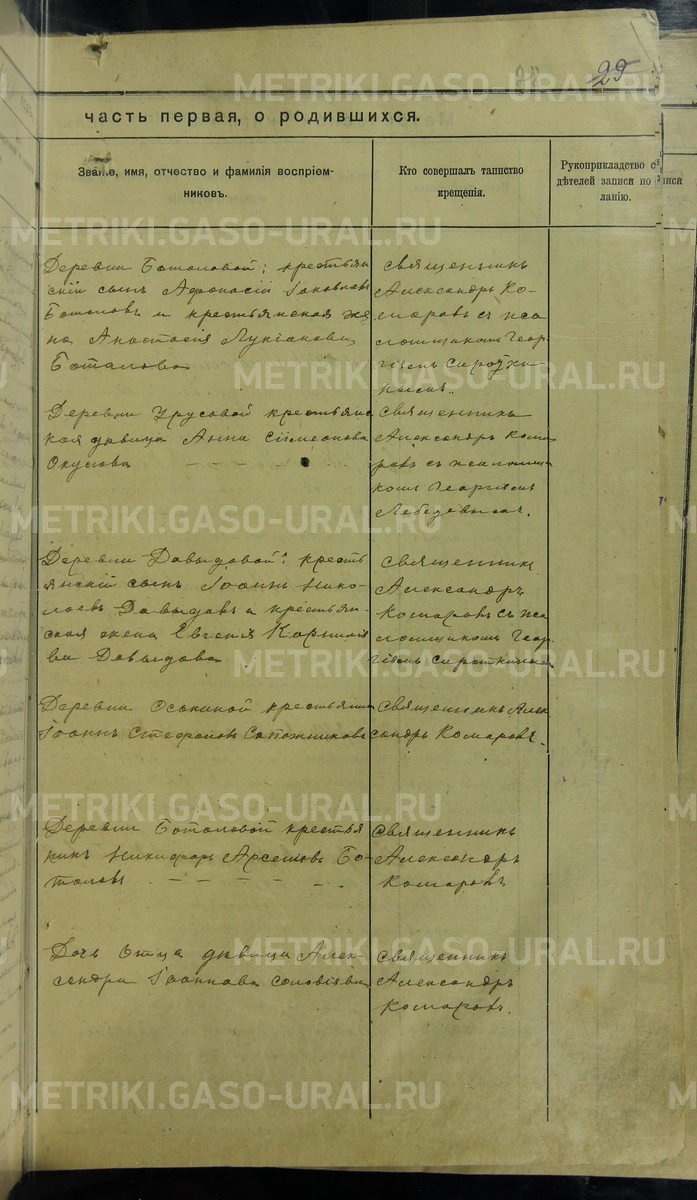 29
часть первая, о родившихся.
Званіе, имя, отчество и фамилія воспріем-
никовъ.
Кто совершалъ таинство
крещенія.
Рукоприкладство
дѣтелей записи по
ланію.
Деревни Боталовой; крестьян
скій сынъ Афонасій Іаковлевъ
Боталовъ и крестьянская же
на Анастасія Лукіанова
Боталова
священникъ
Александръ Ко-
маровъ съ пса
ломщикомъ Геор
гіемъ
Деревни Урусовой крестьянс
кая дѣвица Анна Симеонова
Окулова
Священникъ
Александръ Кома
ровъ съ псаломщи
комъ Георгіемъ
Лебедевымъ.
Деревни Давыдовой; кресть
янскій сынъ Іоаннъ Нико-
лаевъ Давыдовъ и крестьян-
ская жена Евгенія Корнилі
ва Давыдова
священникъ
Александръ
Комаровъ съ пса
ломщикомъ Геор
гіемъ Сироткинымъ
Деревни Осокиной крестьянин
Іоаннъ Стефановъ Сапожниковъ
священникъ Алек
сандръ Комаровъ.
Деревни Боталовой крестья
нинъ Никифоръ Арсеніевъ Бо-
таловъ
священникъ
Александръ
Комаровъ
Дочь Отца дѣвица Алек-
сандра Іоаннова Соловіева
священникъ
Александръ
Комаровъ.
METRIKI.GASO-URAL.RU